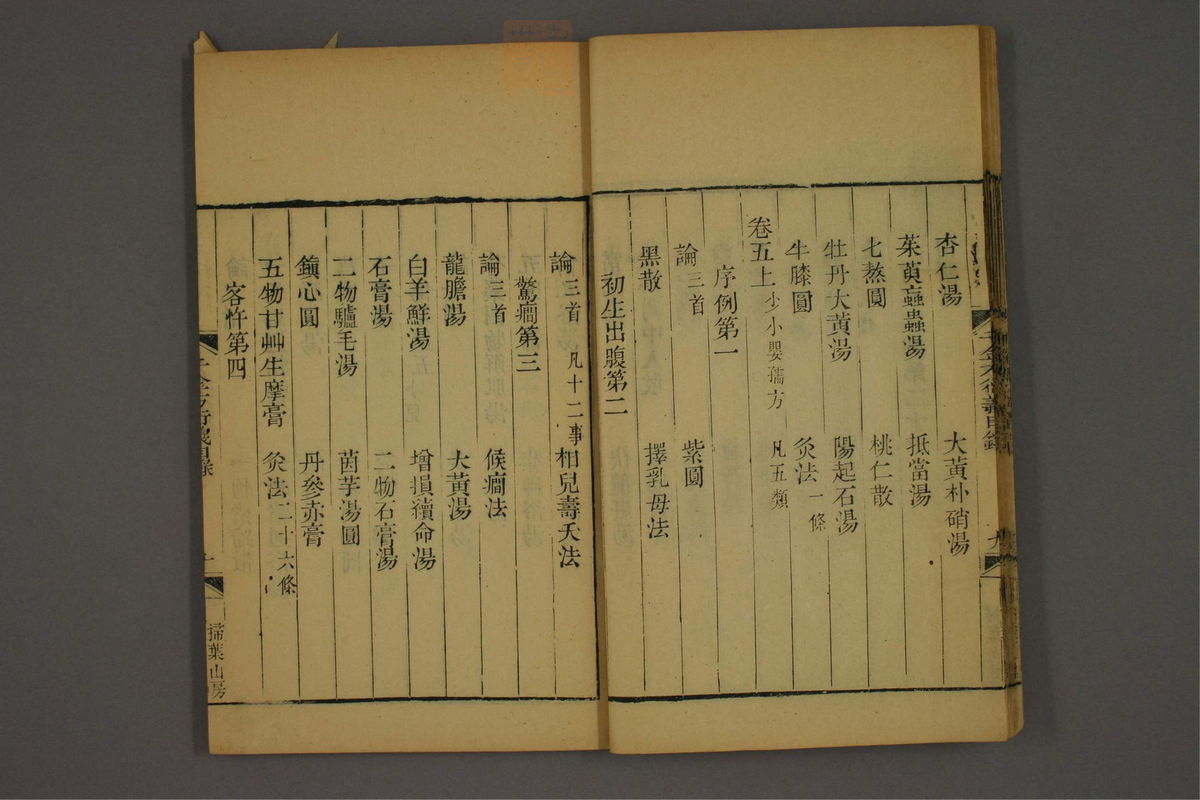 杏仁湯 大黃朴硝湯
茱萸䗪蟲湯 抵當湯
七熬圓 桃仁散
牡丹大黃湯 陽起石湯
牛膝圓 灸法一條
卷五上少小嬰孺方 凡五類
序例第一
論三首 紫圓
黑散 擇乳母法
初生出腹第二
論三首 凡十二事 相兒壽夭法
驚癎第三
論三首 候癎法
龍膽湯 大黃湯
白羊鮮湯 增損續命湯
石膏湯 二物石膏湯
二物驢毛湯 茵芋湯圓
鎮心圓 丹參赤膏
五物甘艸生摩膏 灸法二十六條
客忤第四
千金方衍義目錄
掃葉山房